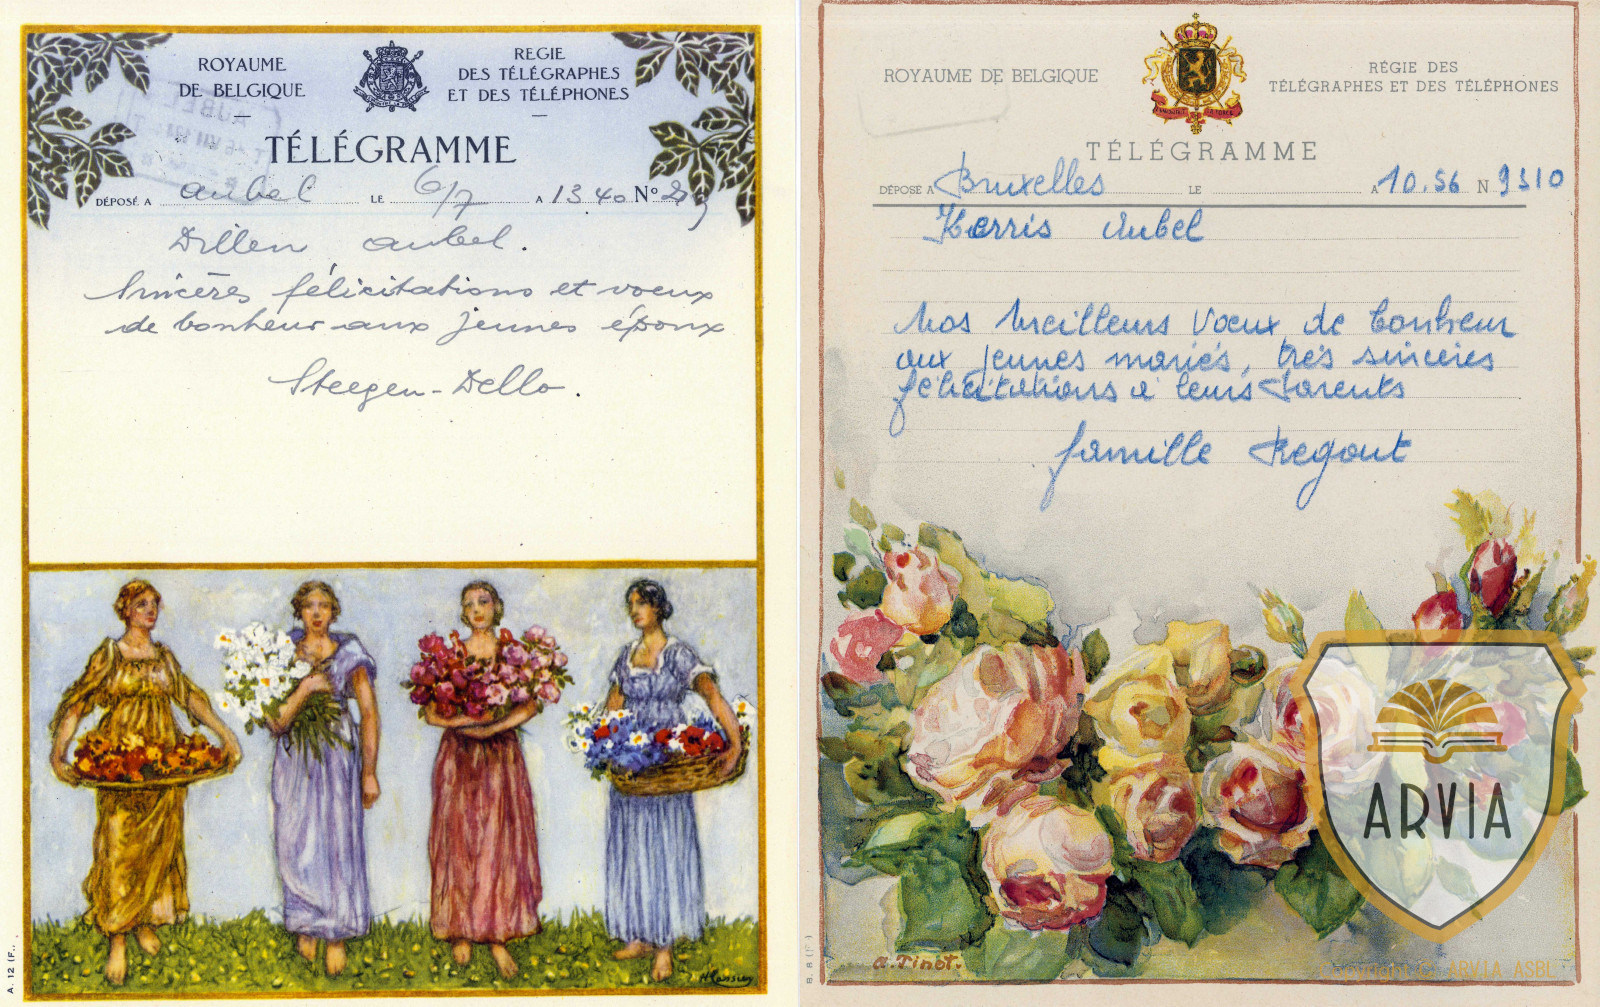 ROYAUME
DE BELGIQUE
REGIE
DES TÉLÉGRAPHES
ET DES TÉLÉPHONES
TÉLÉGRAMME
DÉPOSÉ A aubel LE 6/7 A 13 40 N°
Dillen aubel.
Sincères félicitations et voeux
de bonheur aux jeunes époux
Steegen-Dello.
A. 12 (F..
ROYAUME DE BELGIQUE
RÉGIE DES
TÉLÉGRAPHES ET DES TÉLÉPHONES
TÉLÉGRAMME
DÉPOSÉ A Bruxelles LE A 10.56 N 9310
Kerris Aubel
Nos meilleurs Voeux de bonheur
aux jeunes mariés, très sincères
félicitations à leurs Parents
famille Regout
A. Pinot.
B. 8 (F.)
ARVIA
Copyright © ARVIA ASBL